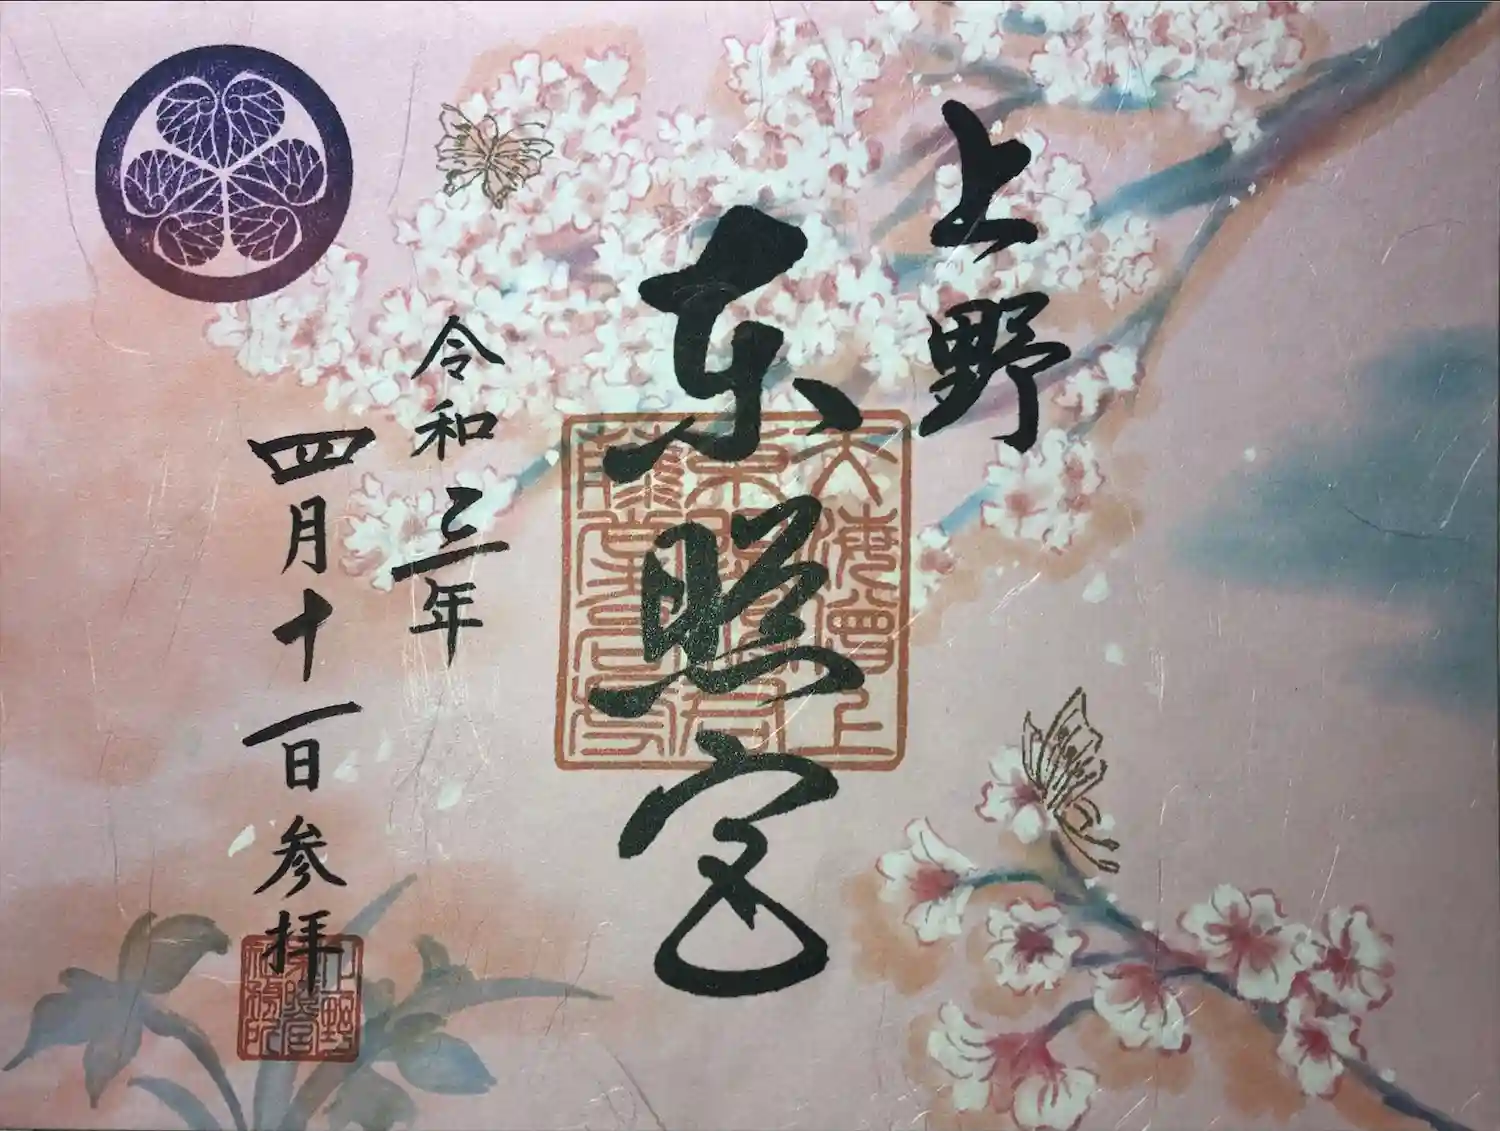 上野
東照宮
令和三年
四月十一日参拝
上野
東照宮
社務所